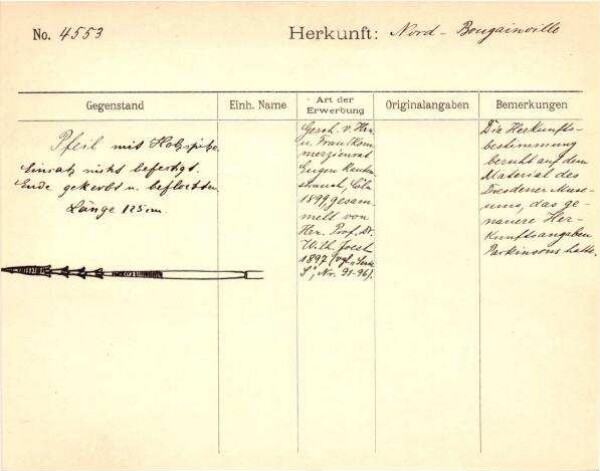 No. 4553
Herkunft: Nord-Bougainville
Gegenstand
Einh. Name
Art der
Erwerbung
Originalangaben
Bemerkungen
Pfeil mit Holzspitze.
Einsatz nicht befestigt.
Ende gekerbt u. beflochten.
Länge 125 cm.
Gesch. v. Herr
u. Frau Kom
merzienrat
Eugen Rauten
strauch, Cöln
1899, gesam
melt von
Herr. Prof. Dr.
Wilh. Joest
1897 (vgl.
S", Nr. 91-96).
Die Herkunfts-
bestimmung
beruht auf dem
Material des
Dresdener Muse-
ums, das ge-
nauere Her-
kunftsangaben
Parkinsons hatte.